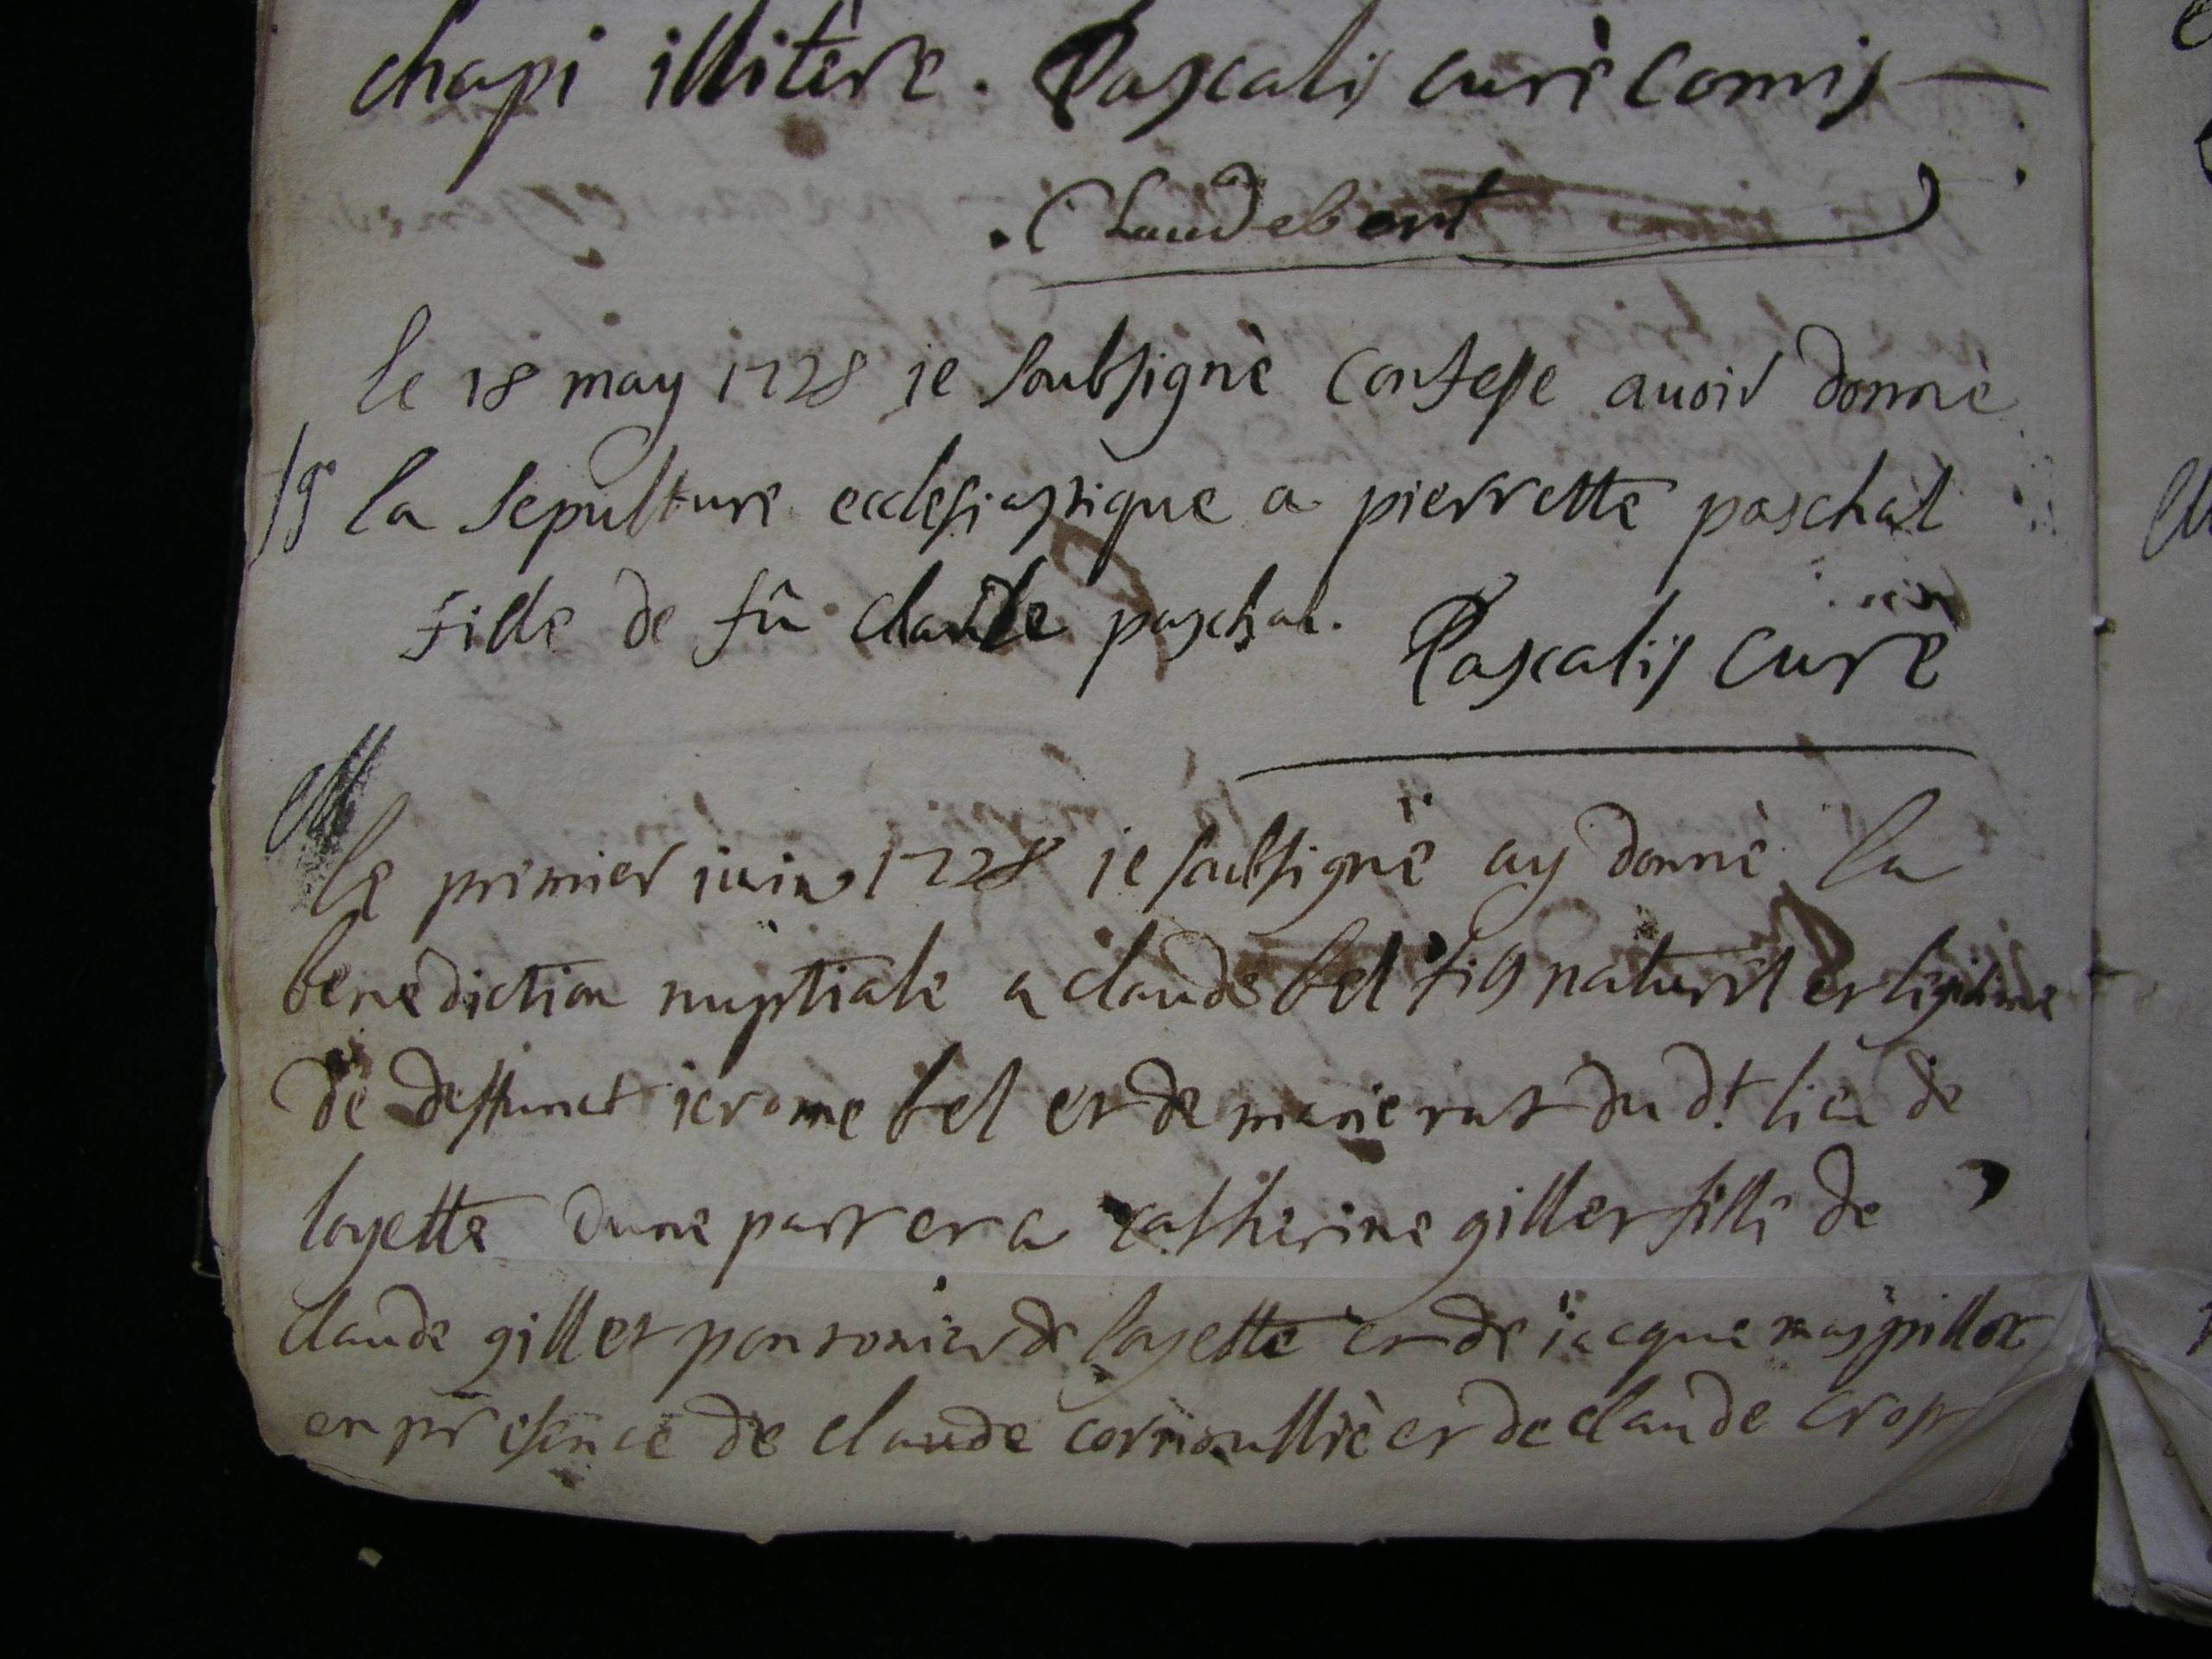 chapi illitère. Pascalis curè comis
Chaudebert
le 18 may 1728 je soubsignè confesse auoir donnè
la sepulture ecclesiastique a pierrette paschal
fille de fû claude paschal. Pascalis curè
M
le premier iuin 1728 ie soubsignè ay donnè la
benediction nuptiale a claude bel fis naturel et legitime
de deffunct ierome bel et de marie rut du dt lieu de
layette dune part et a catherine gillet fille de
claude gillet de layette et de iacquema pillot
en presence de claude cornoulliè et de claude crop